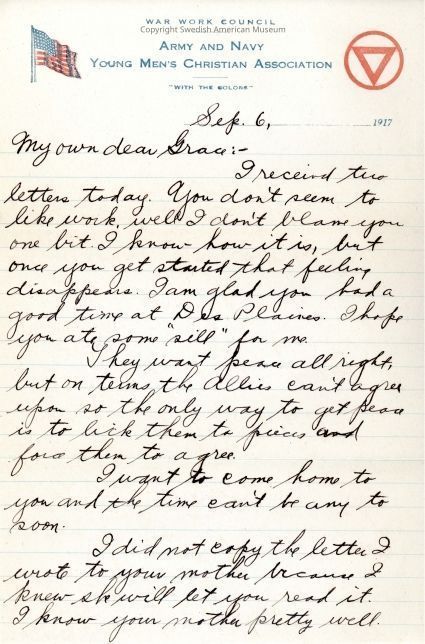 WAR WORK COUNCIL
Copyright Swedish American Museum
ARMY AND NAVY
YOUNG MEN'S CHRISTIAN ASSOCIATION
"WITH THE COLORS"
Sep. 6, 1917
My own dear Grace:-
I receivd two
letters today. You don't seem to
like work, well I don't blame you
one bit. I know how it is, but
once you get started that feeling
disappears. I am glad you had a
good time at Des Plaines. I hope
you ate some "sill" for me.
They want peace all right,
but on terms the Allies can't agree
upon so the only way to get peace
is to lick them to pieces and
force them to agree.
I want to come home to
you and the time can't be any to
soon.
I did not copy the letter I
wrote to your mother because I
knew she will let you read it.
I know your mother pretty well.